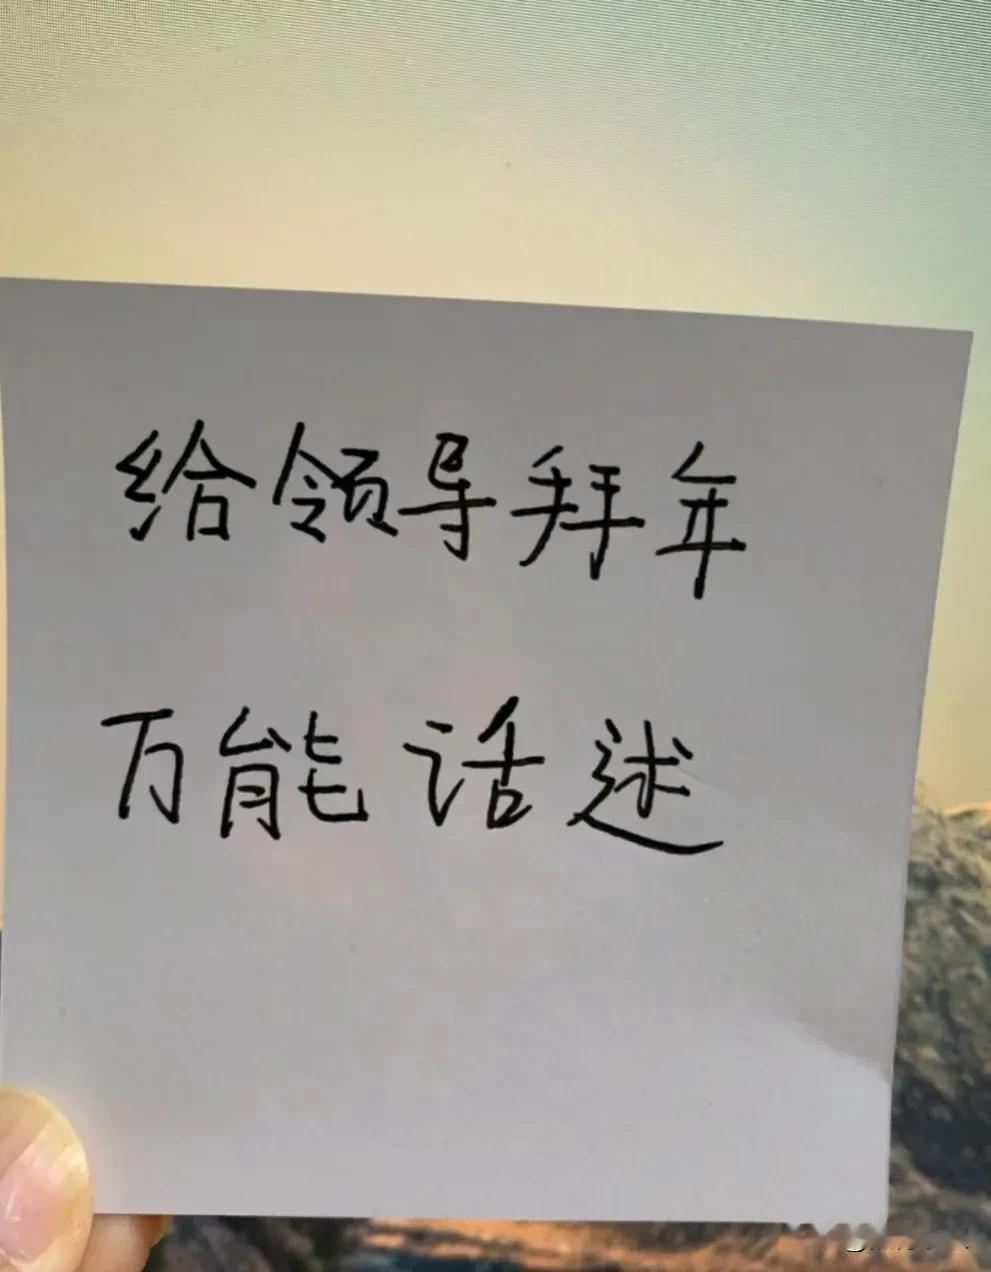 给领导拜年
万能话述